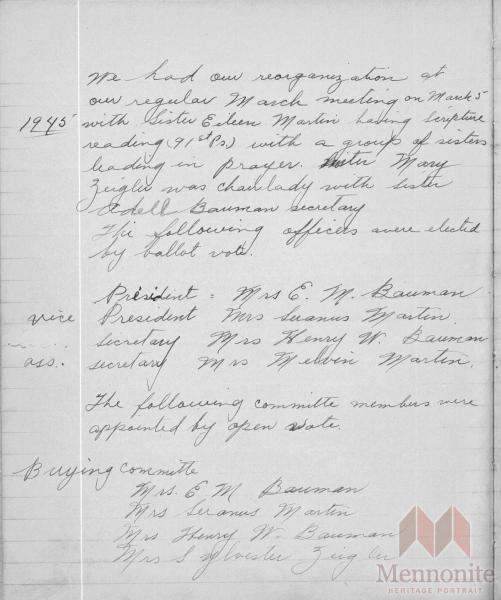 We had our reorganization at
our regular March meeting on March 5
1945 with Sister Eileen Martin having Scripture
reading (91st Ps.) with a group of sisters
leading in prayer. Sister Mary
Zeigler was chairlady with sister
Adell Bauman secretary
The following officers were elected
by ballot vote.
President : Mrs E. M. Bauman
vice President Mrs Suanus Martin
secretary Mrs Henry W. Bauman
ass. secretary Mrs Melvin Martin.
The following committe members were
appointed by open vote.
Buying Committe
Mrs. E M Bauman
Mrs Suanus Martin
Mrs Henry W. Bauman
Mrs Sylvester Zeigler
Mennonite
HERITAGE PORTRAIT